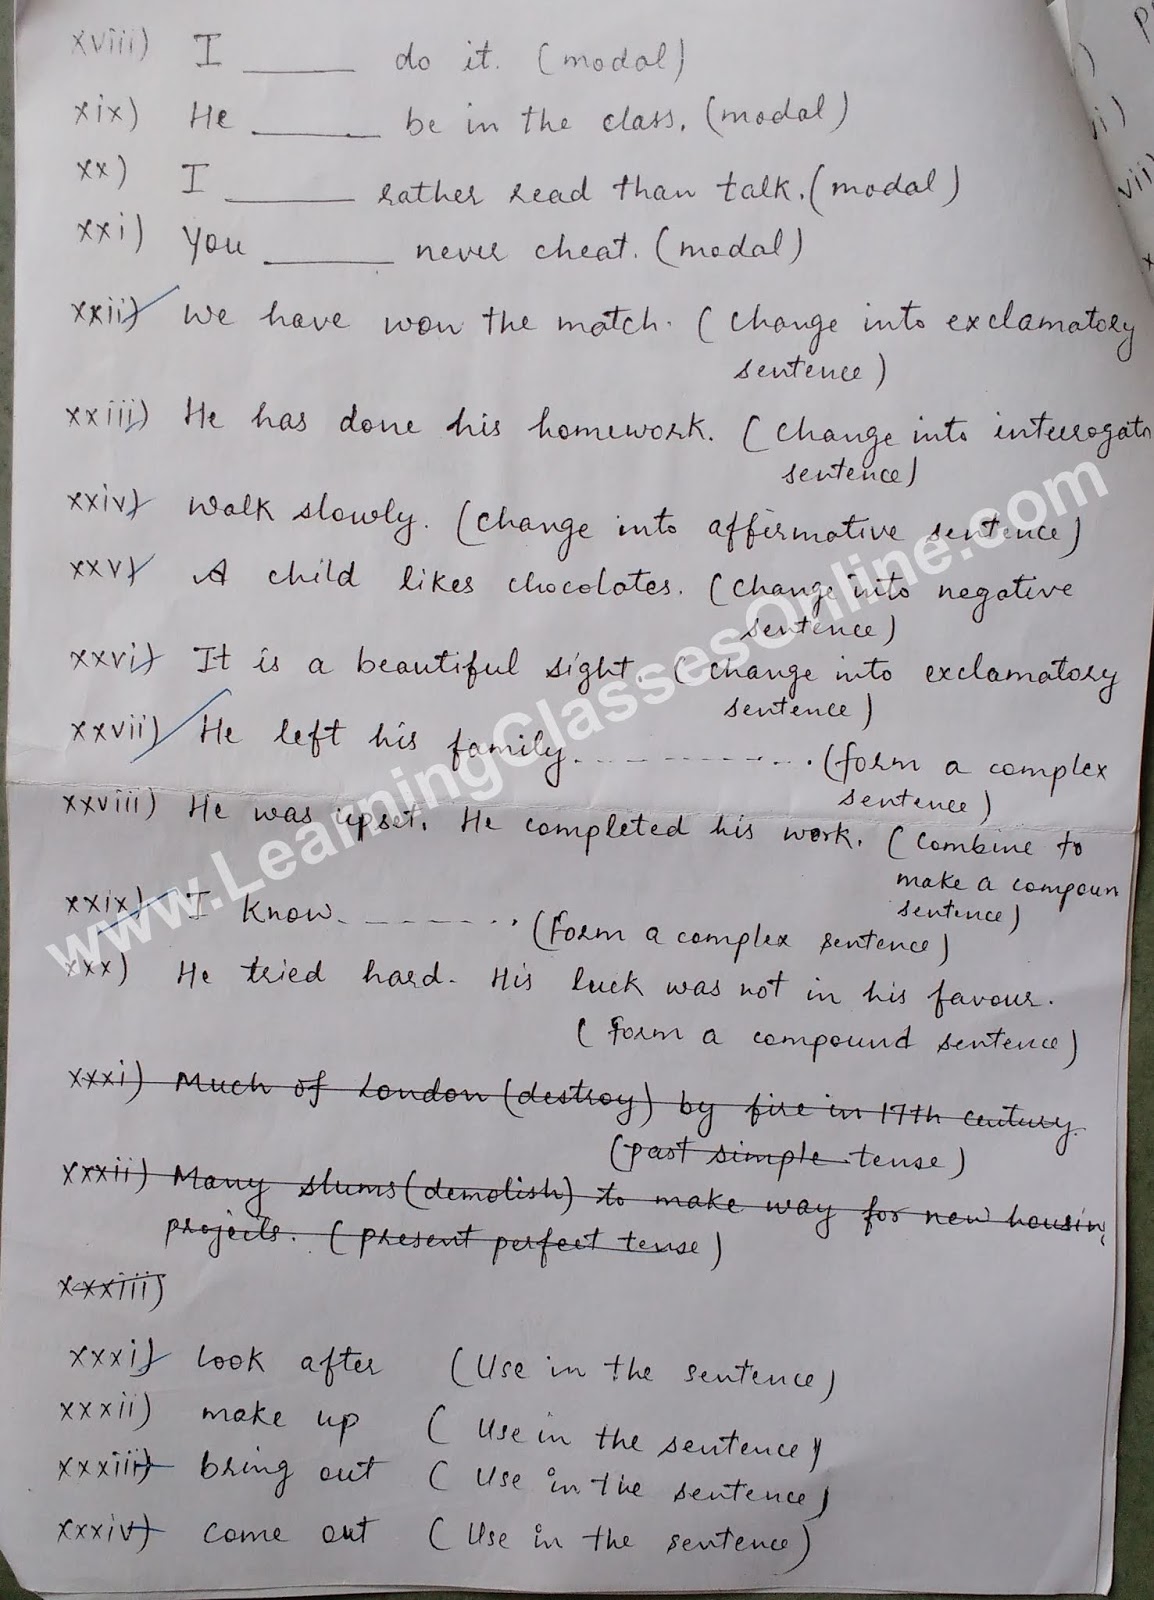 xviii) I ______ do it. (modal)
xix) He ______ be in the class. (modal)
xx) I ______ rather read than talk. (modal)
xxi) You ______ never cheat. (modal)
xxii) We have won the match. (change into exclamatory
sentence)
xxiii) He has done his homework. (change into interrogato
sentence)
xxiv) Walk slowly. (change into affirmative sentence)
xxv) A child likes chocolates. (change into negative
sentence)
xxvi) It is a beautiful sight. (change into exclamatory
sentence)
xxvii) He left his family............. (form a complex
sentence)
xxviii) He was upset. He completed his work. (combine to
make a compoun
sentence)
xxix) I know.......... (form a complex sentence)
xxx) He tried hard. His luck was not in his favour.
(form a compound sentence)
xxxi) Much of London (destroy) by fire in 17th century.
(past simple tense)
xxxii) Many slums (demolish) to make way for new housing
projects. (present perfect tense)
xxxiii)
xxxi) look after (Use in the sentence)
xxxii) make up (Use in the sentence)
xxxiii) bring out (Use in the sentence)
xxxiv) come out (Use in the sentence)
www.LearningClassesOnline.com
vi)
vii)